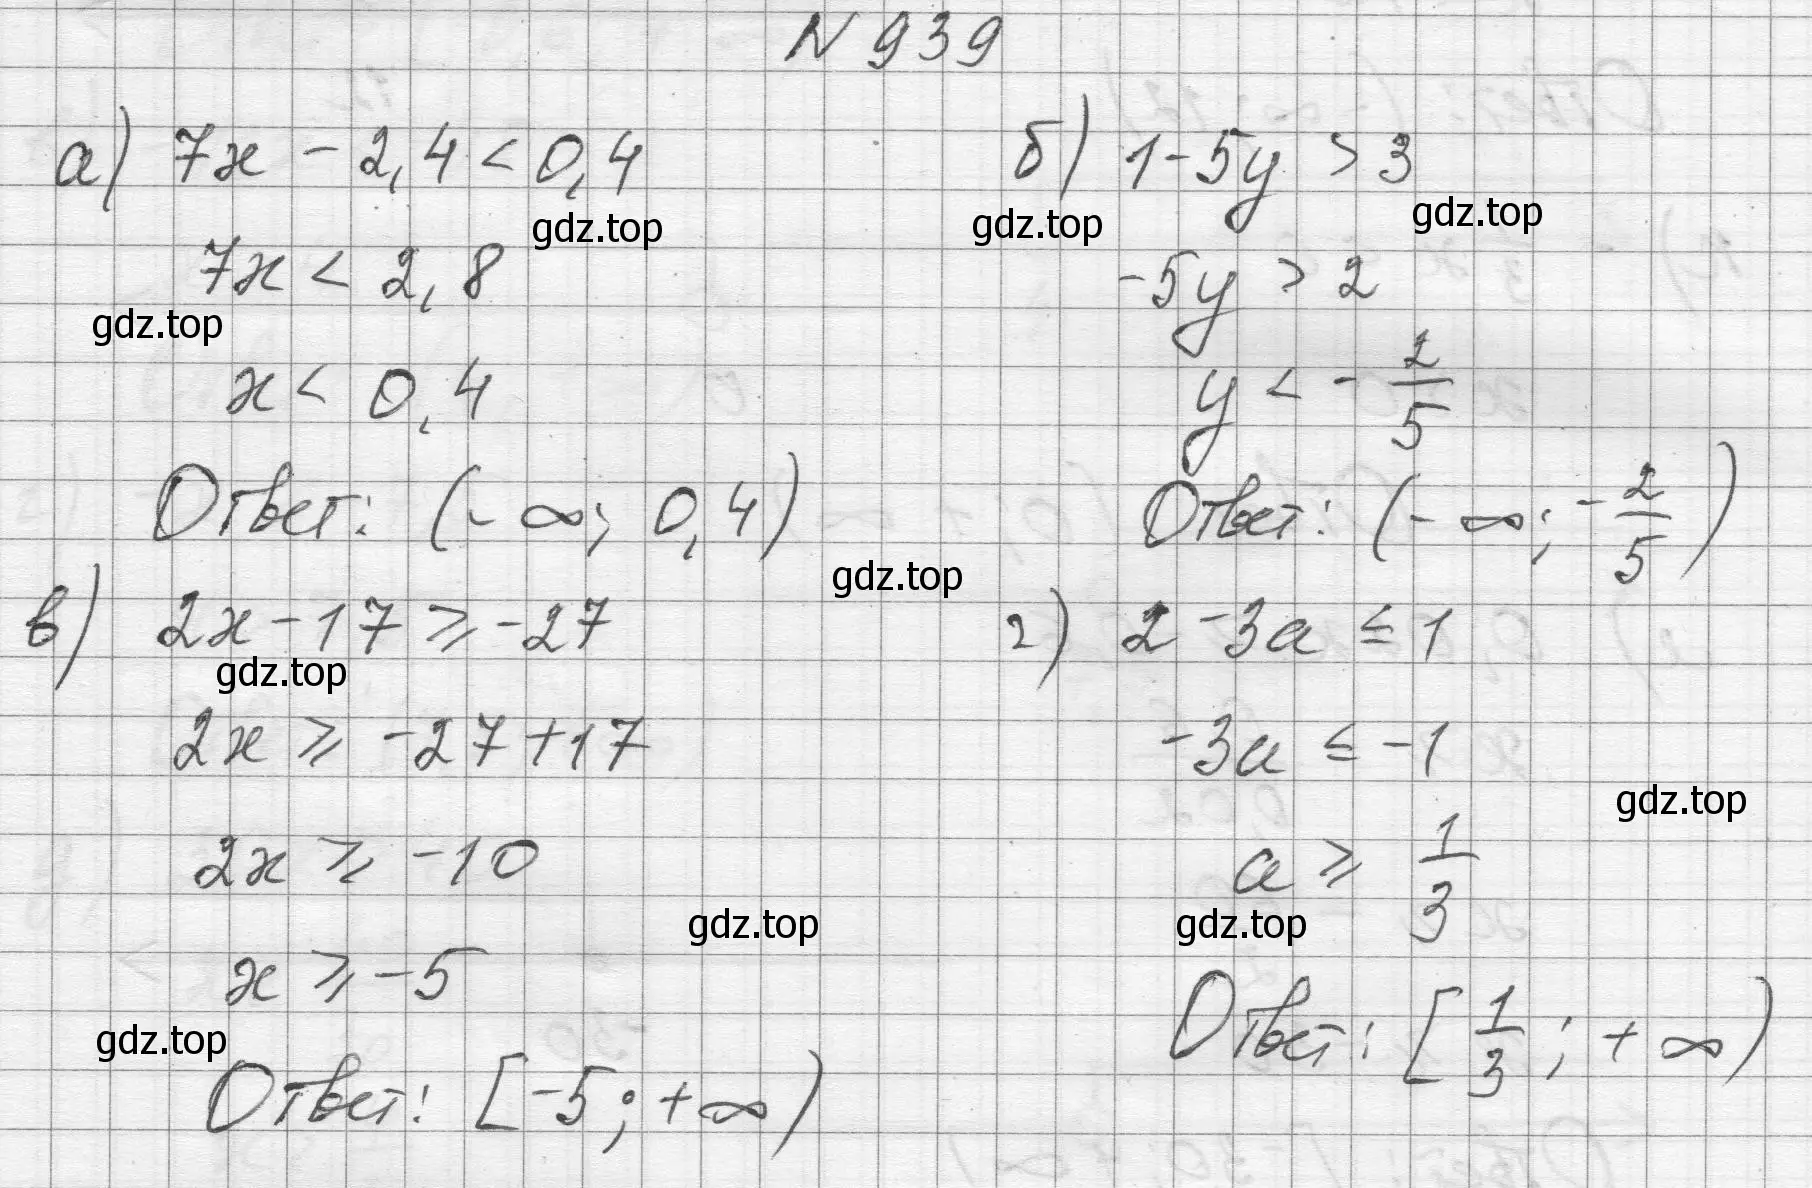 N 939
а) 7x - 2,4 < 0,4
gdz.top
7x < 2,8
gdz.top
x < 0,4
Ответ: (-∞; 0,4)
б) 1 - 5y > 3
gdz.top
gdz.top
-5y > 2
y < -2/5
Ответ: (-∞; -2/5)
gdz.top
в) 2x - 17 ≥ -27
gdz.top
2x ≥ -27 + 17
2x ≥ -10
gdz.top
x ≥ -5
gdz.top
Ответ: [-5; +∞)
г) 2 - 3a ≤ 1
-3a ≤ -1
gdz.top
a ≥ 1/3
gdz.top
Ответ: [1/3; +∞)